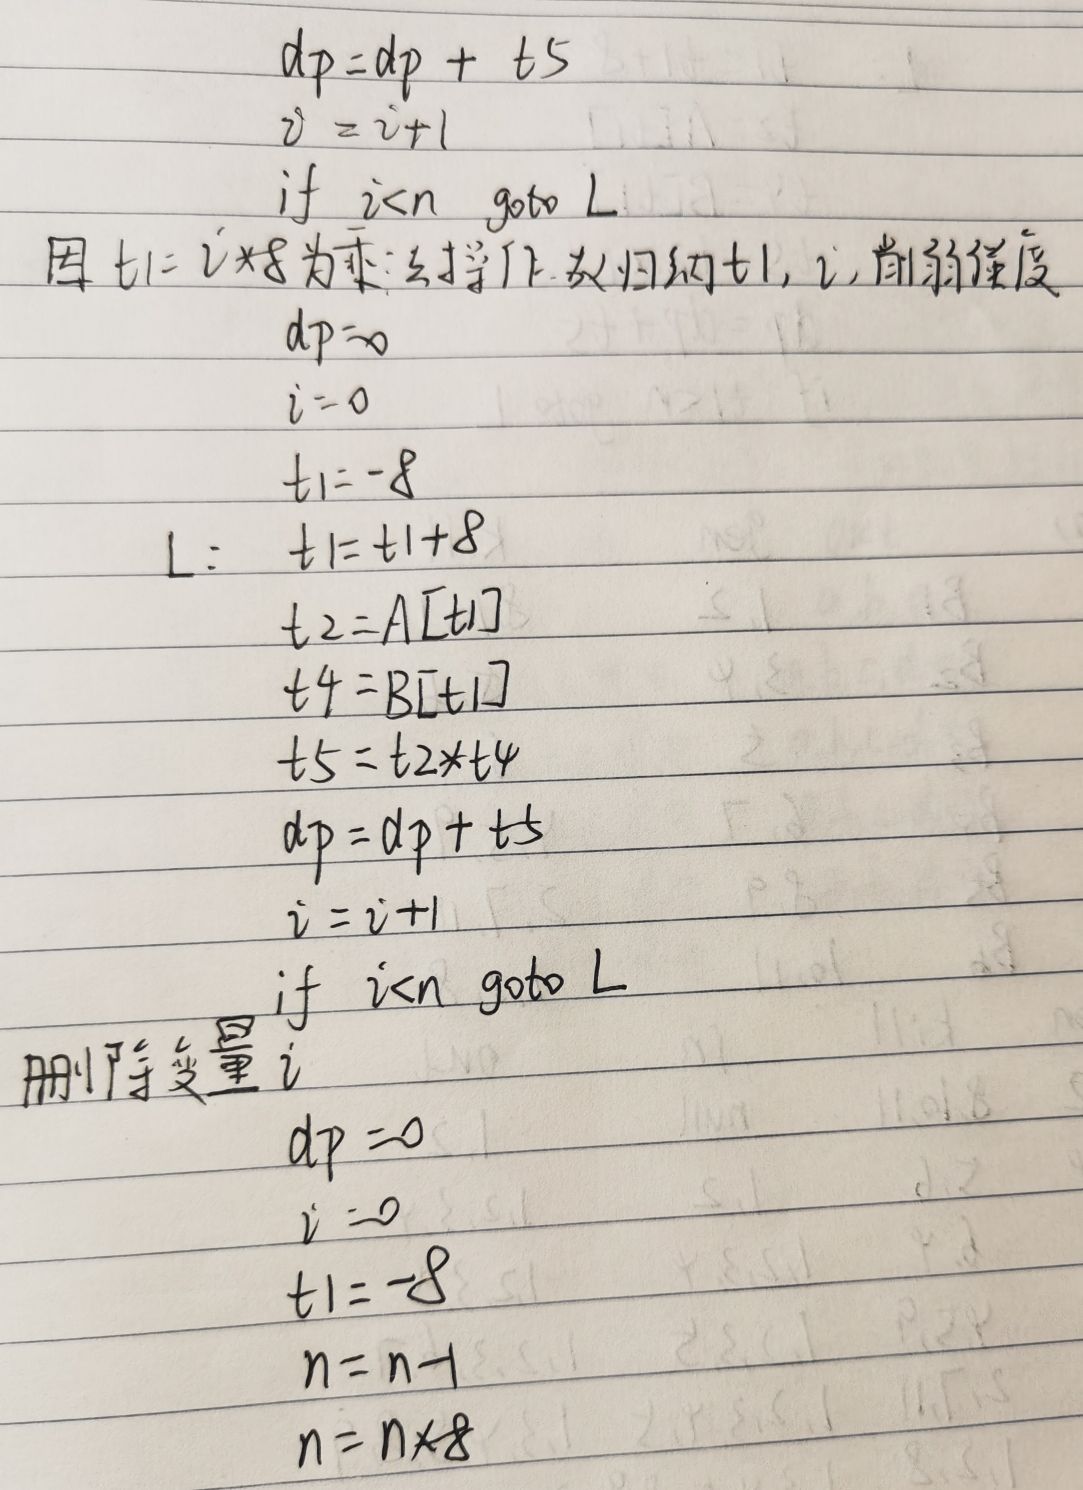 dp=dp + t5
i=i+1
if i<n goto L
因t1=i*8为乘法操作.故归纳t1, i,削弱强度
dp=0
i=0
t1=-8
L: t1=t1+8
t2=A[t1]
t4=B[t1]
t5=t2*t4
dp=dp+t5
i=i+1
if i<n goto L
删除变量i
dp=0
i=0
t1=-8
n=n-1
n=n*8